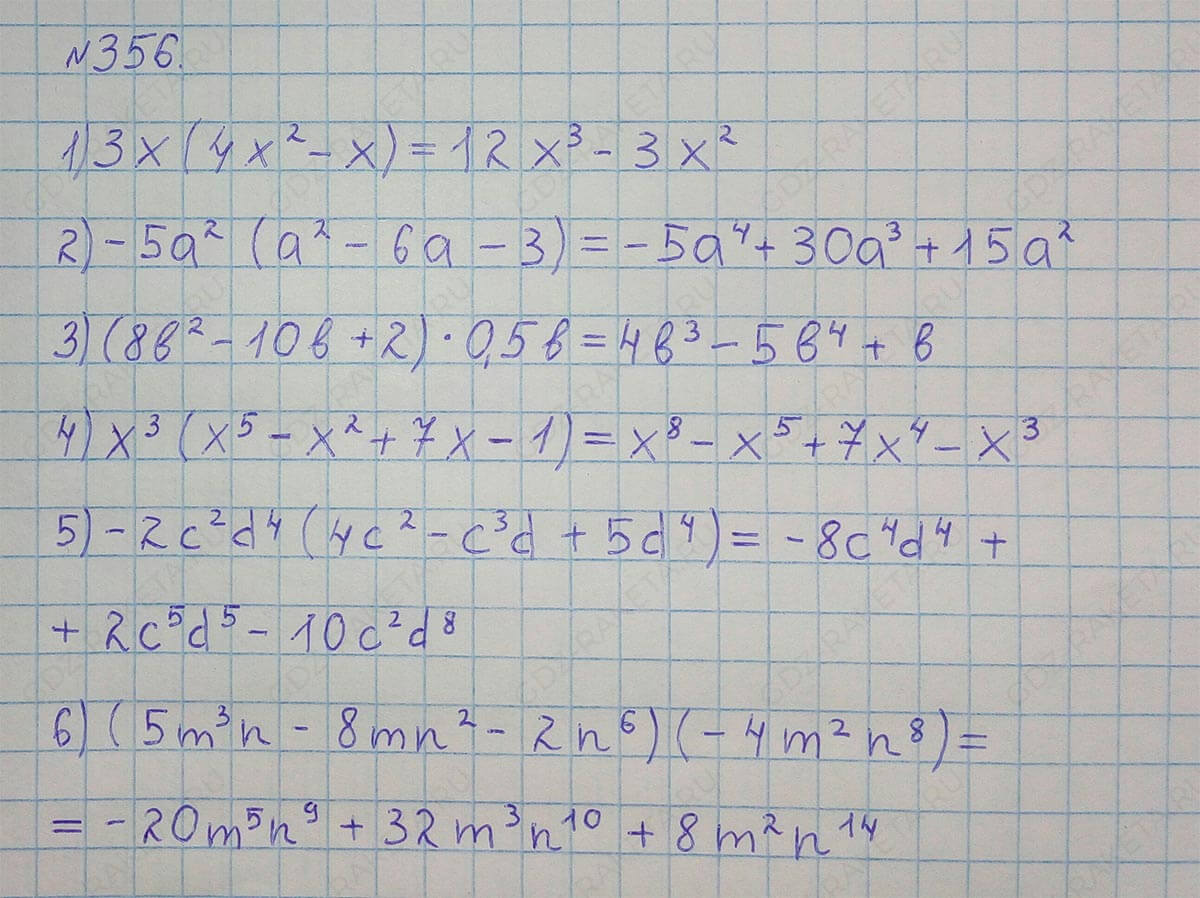 №356.
1) 3x(4x² - x) = 12x³ - 3x²
2) -5a² (a² - 6a - 3) = -5a⁴ + 30a³ + 15a²
3) (8в² - 10в + 2) · 0,5в = 4в³ - 5в⁴ + в
4) x³ (x⁵ - x² + 7x - 1) = x⁸ - x⁵ + 7x⁴ - x³
5) -2c²d⁴ (4c² - c³d + 5d⁴) = -8c⁴d⁴ +
+ 2c⁵d⁵ - 10c²d⁸
6) (5m³n - 8mn² - 2n⁶)(-4m²n⁸) =
= -20m⁵n⁹ + 32m³n¹⁰ + 8m²n¹⁴